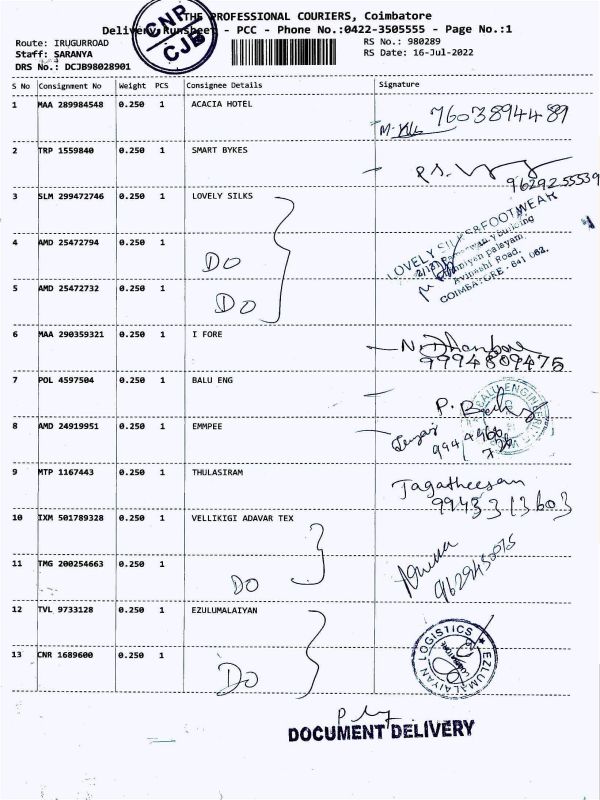 THE PROFESSIONAL COURIERS, Coimbatore
Delivery Runsheet - PCC - Phone No.:0422-3505555 - Page No.:1
CNR
CJB
Route: IRUGURROAD
RS No.: 980289
Staff: SARANYA
RS Date: 16-Jul-2022
DRS No.: DCJB98028901
S No Consignment No Weight PCS Consignee Details Signature
1 MAA 289984548 0.250 1 ACACIA HOTEL
7603894489
2 TRP 1559840 0.250 1 SMART BYKES
9629255539
3 SLM 299472746 0.250 1 LOVELY SILKS
LOVELY SILKS & FOOTWEAR
4 AMD 25472794 0.250 1
DO
Avinashi Road,
5 AMD 25472732 0.250 1
DO
6 MAA 290359321 0.250 1 I FORE
9994809475
7 POL 4597504 0.250 1 BALU ENG
8 AMD 24919951 0.250 1 EMMPEE
9 MTP 1167443 0.250 1 THULASIRAM
Jagatheesan
9943313603
10 IXM 501789328 0.250 1 VELLIKIGI ADAVAR TEX
11 TMG 200254663 0.250 1
DO
12 TVL 9733128 0.250 1 EZULUMALAIYAN
EZLUMALAIYAN LOGISTICS
13 CNR 1689600 0.250 1
DO
DOCUMENT DELIVERY